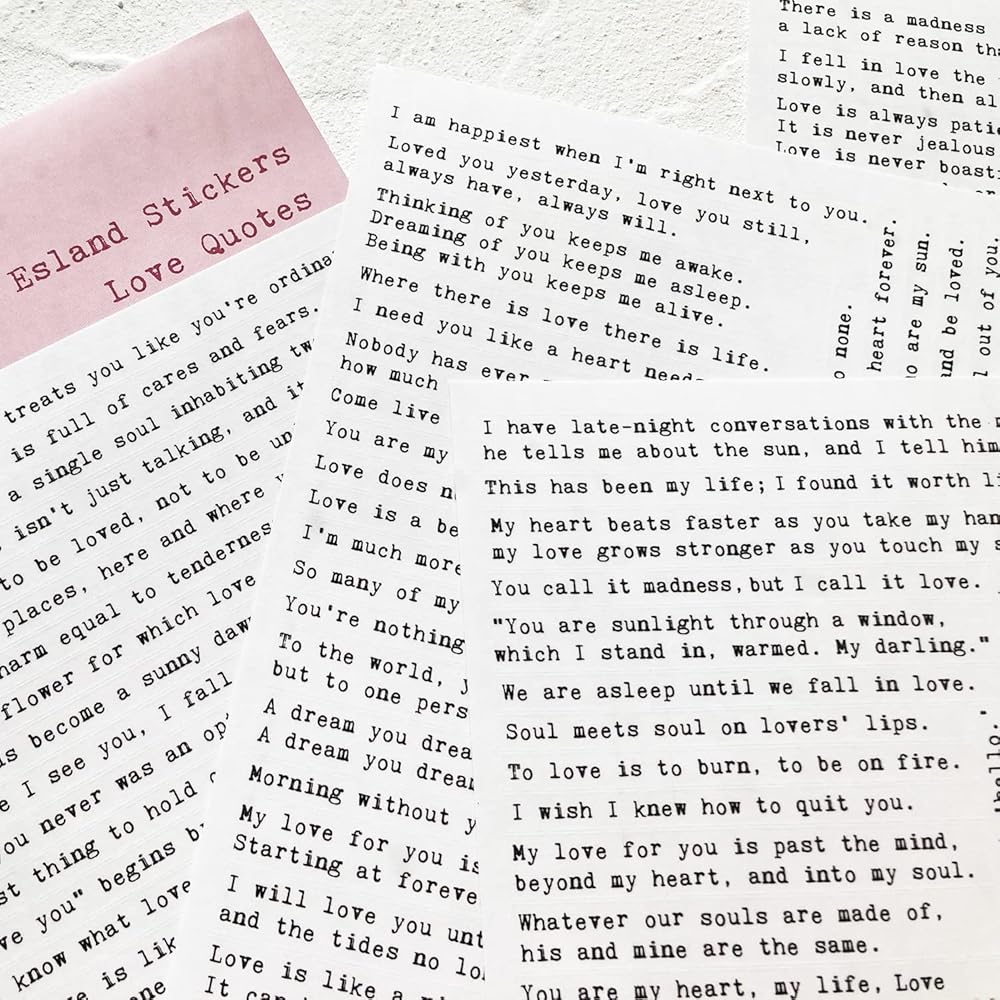 Esland Stickers
Love Quotes
treats you like you're
is full of cares and fears.
a single soul inhabiting
isn't just talking, and it
to be loved, not to be
places, here and where
equal to
flower for which love
become a sunny
I see you, I fall
you never was an
thing to hold
you" begins
know what love
is
one
I am happiest when I'm right next to you.
Loved you yesterday, love you still,
always have, always will.
Thinking of you keeps me awake.
Dreaming of you keeps me asleep.
Being with you keeps me alive.
Where there is love there is life.
I need you like a heart
Nobody has ever
how much
Come live
You are my
Love does
Love is a
I'm much more
So many of my
You're nothing
To the world,
but to one
A dream you
A dream you
Morning without
My love for you is
Starting at
I will love you
and the tides no
Love is like a
It
none.
heart forever.
are my sun.
and be loved.
out of you.
There is a madness
a lack of reason
I fell in love the
slowly, and then
Love is always
It is never jealous
Love is never
I have late-night conversations with the
he tells me about the sun, and I tell him
This has been my life; I found it worth
My heart beats faster as you take my
my love grows stronger as you touch my
You call it madness, but I call it love.
"You are sunlight through a window,
which I stand in, warmed. My darling."
We are asleep until we fall in love.
Soul meets soul on lovers' lips.
To love is to burn, to be on fire.
I wish I knew how to quit you.
My love for you is past the mind,
beyond my heart, and into my soul.
Whatever our souls are made of,
his and mine are the same.
You are my heart, my life, Love